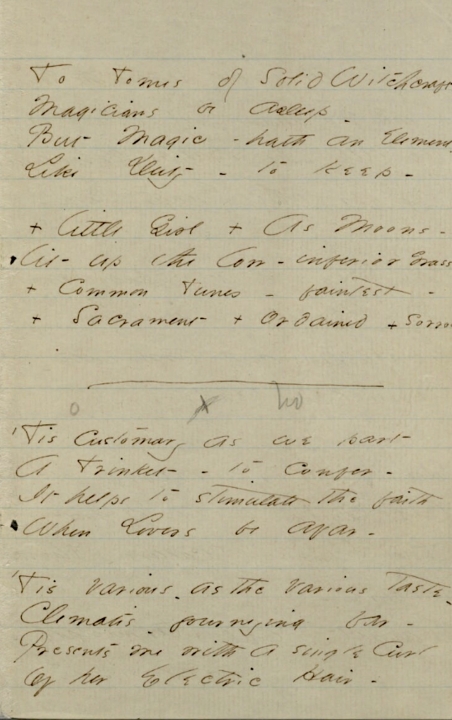 To Tomes of Solid Witchcraft
Magicians be asleep
But Magic - hath an Element
Like Deity - to keep -
+ little Bird + As Moons -
Lit up the - inferior Grass
+ Common Tunes - faintest -
+ Sacrament + Ordained +
'Tis Customary as we part
A Trinket - to confer -
It helps to stimulate the faith
When Lovers be afar -
'Tis various - as the various taste -
Clematis - journeying far -
Presents me with a single Curl
Of her Electric Hair -